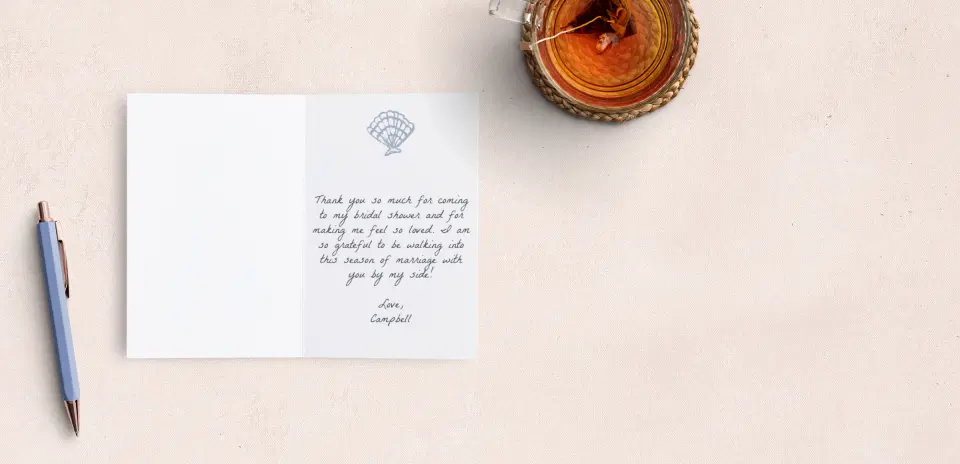 Thank you so much for coming
to my bridal shower and for
making me feel so loved. I am
so grateful to be walking into
this season of marriage with
you by my side!
Love,
Campbell